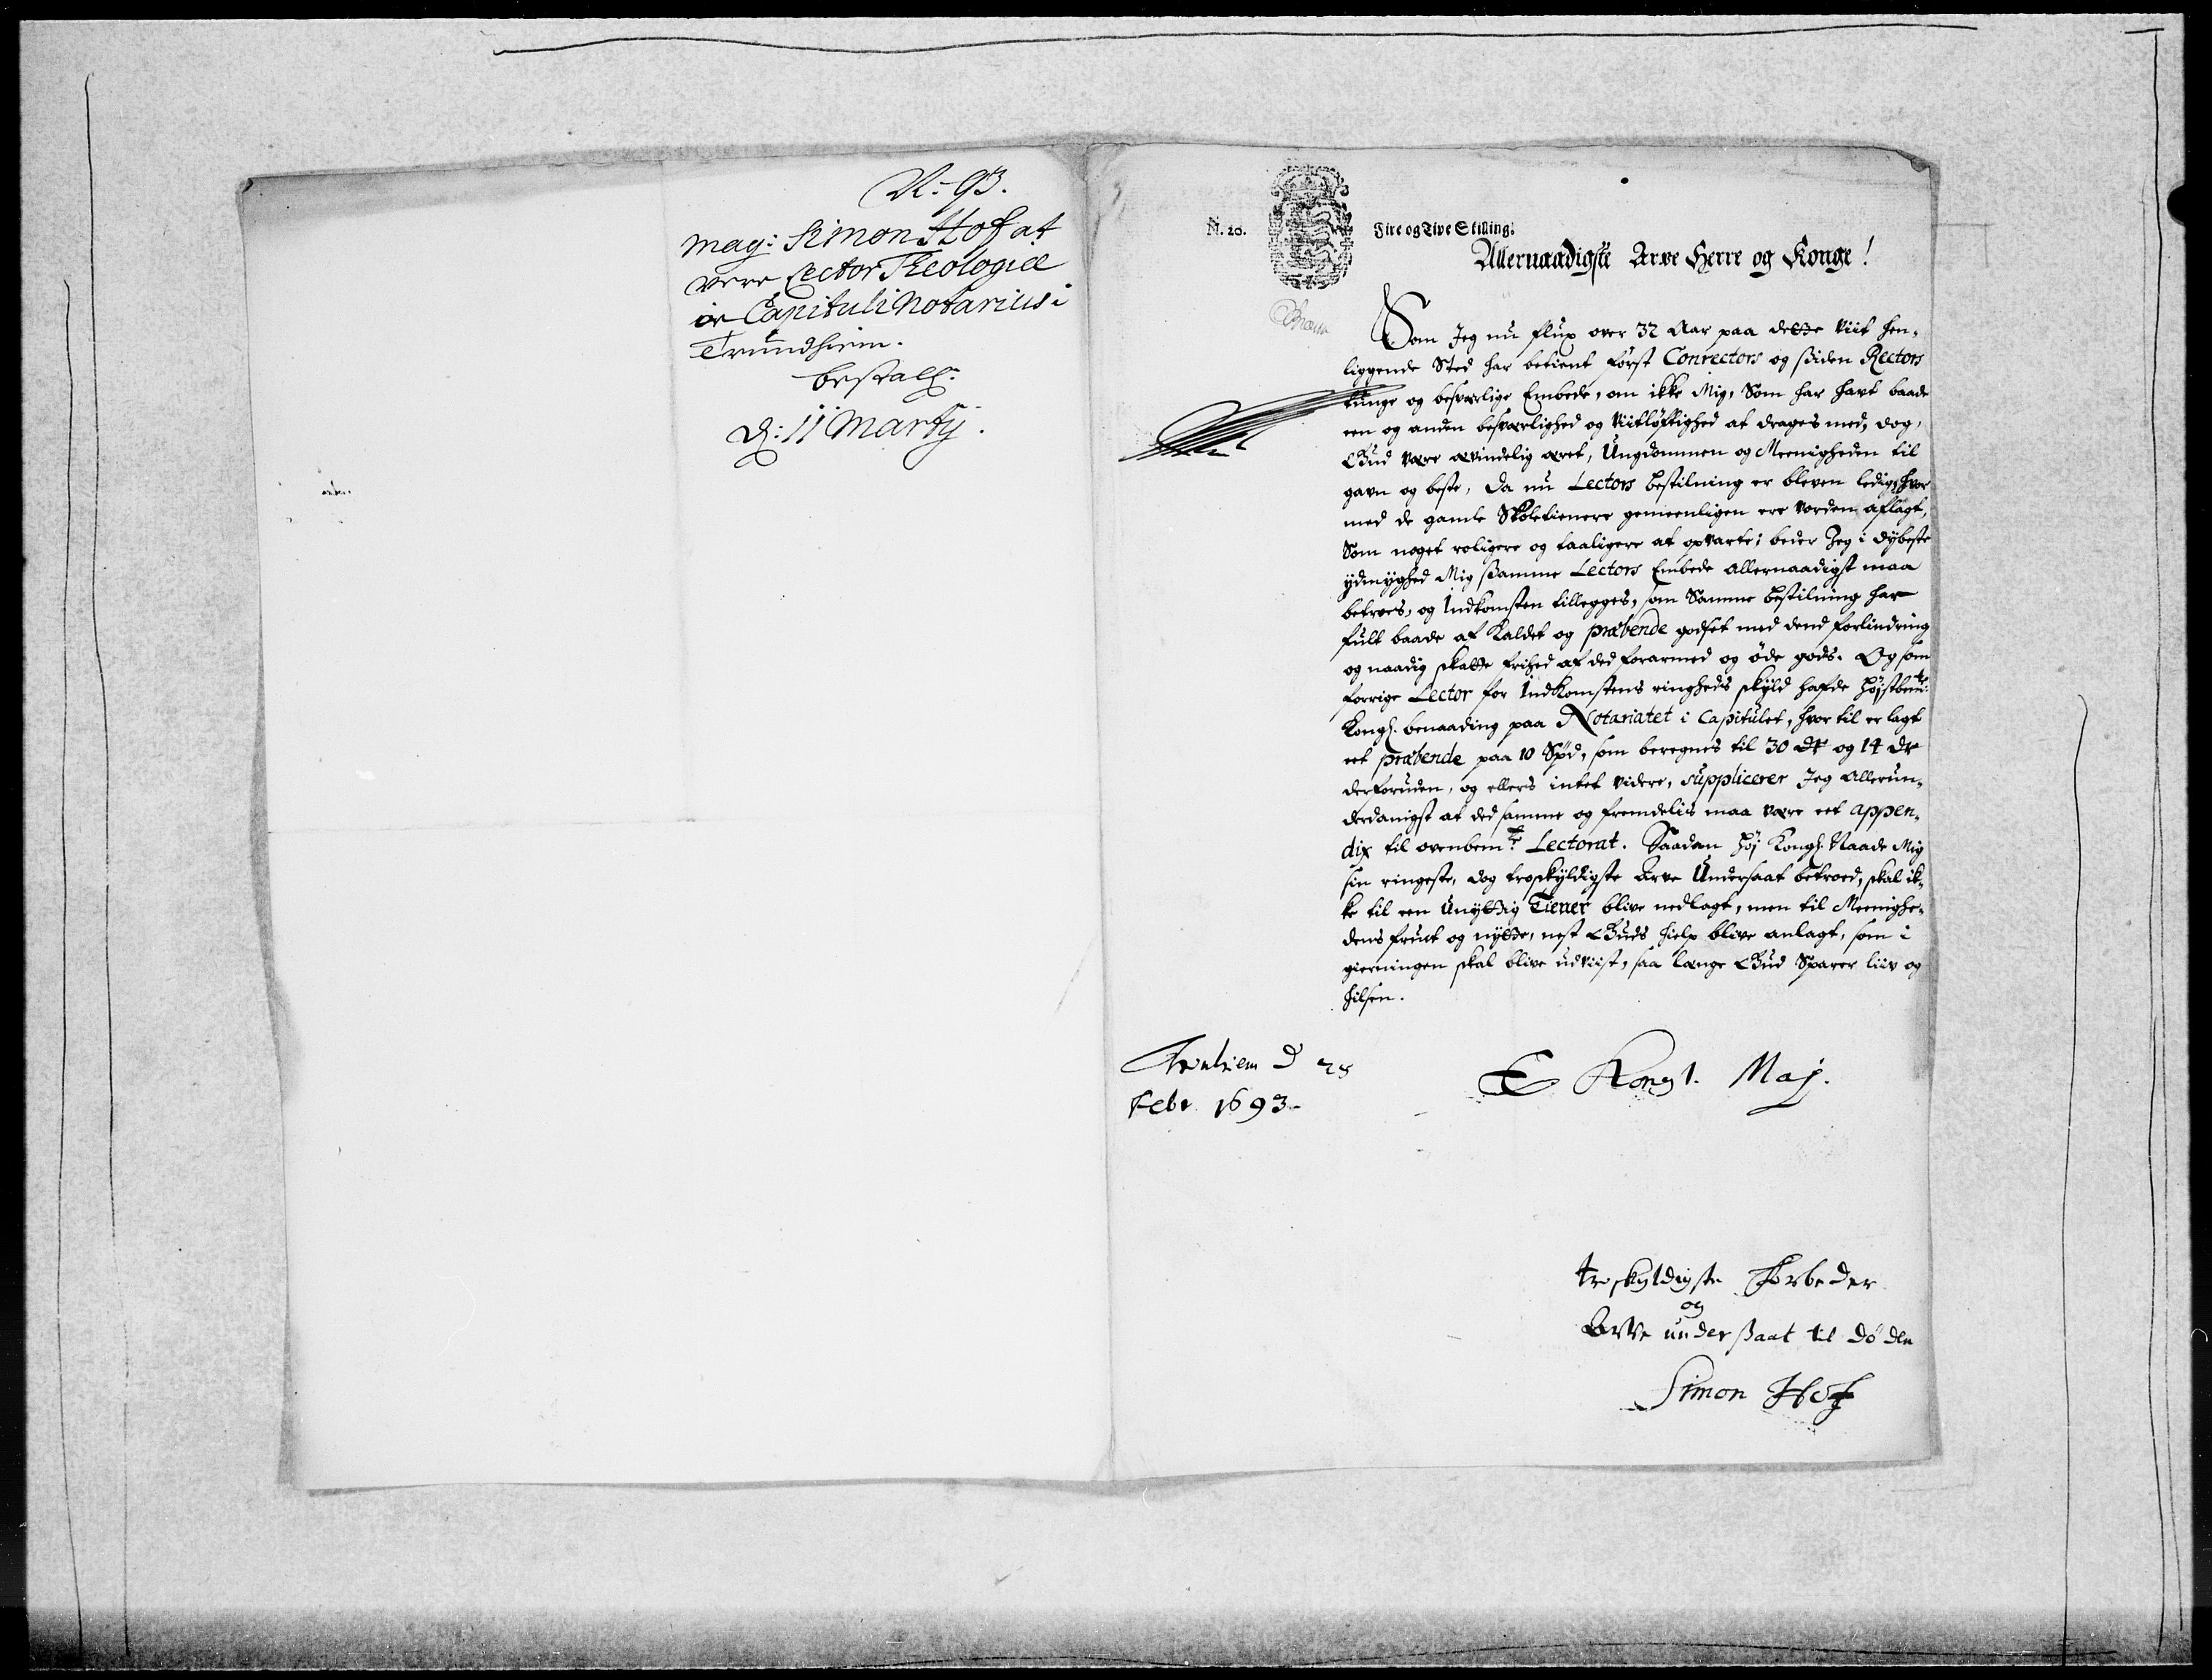 N: 93.
Mag: Simon Hof at
være Lector Theologiæ
oc Capituli Notarius i
Trundhiem.
bestall:
D: 11 Martij.
N. 20.
Fire og Tive Skilling.
Allernaadigste Arve Herre og Konge!
Som Jeg nu flux over 32 Aar paa dette viit hen-
liggende Sted har betient først Conrectors og siden Rectors
tunge og besværlige Embede, om ikke Mig, Som har havt baade
een og anden besværlighed og viitløftighed at drages med, dog,
Gud være æwindelig æret, Ungdommen og Meenigheden til
gavn og beste, da nu Lectors bestilning er bleven ledig, hvor
med de gamle Skoletienere gemeenligen ere vorden aflagt,
Som noget roligere og taaligere at opvarte; beder Jeg i dybeste
ydmyghed Mig samme Lectors Embede allernaadigst maa
betroes, og Indkomsten tillegges, som Samme bestilning har
fult baade af Kaldet og præbende godset med dend forlindring
og naadig skatte frihed af ded forarmed og øde gods. Og som
forrige Lector for Indkomstens ringheds skyld hafde høystbem:te
Kongl. benaading paa Notariatet i Capitulet, hvor til er lagt
eet præbende paa 10 Spd, som beregnes til 30 dr og 14 dr
derforuden, og ellers intet videre, supplicerer Jeg Allerun-
derdanigst at ded samme og fremdelis maa være eet appen-
dix til ovenbem:te Lectorat. Saadan høj Kongl. Naade Mig
sin ringeste, dog troskyldigste Arve Undersaat betroed, skal ik-
ke til een Unyttig Tiener blive nedlagt, men til Meenighe-
dens fruct og nytte, nest Guds hielp blive anlagt, som i
gierningen skal blive udviist, saa længe Gud Sparer liiv og
hilsen.
Trunhiem D 28
Febr. 1693.
E Kongl. Maj.
troskyldigste Forbeder
og
Arve undersaat til døden
Simon Hof